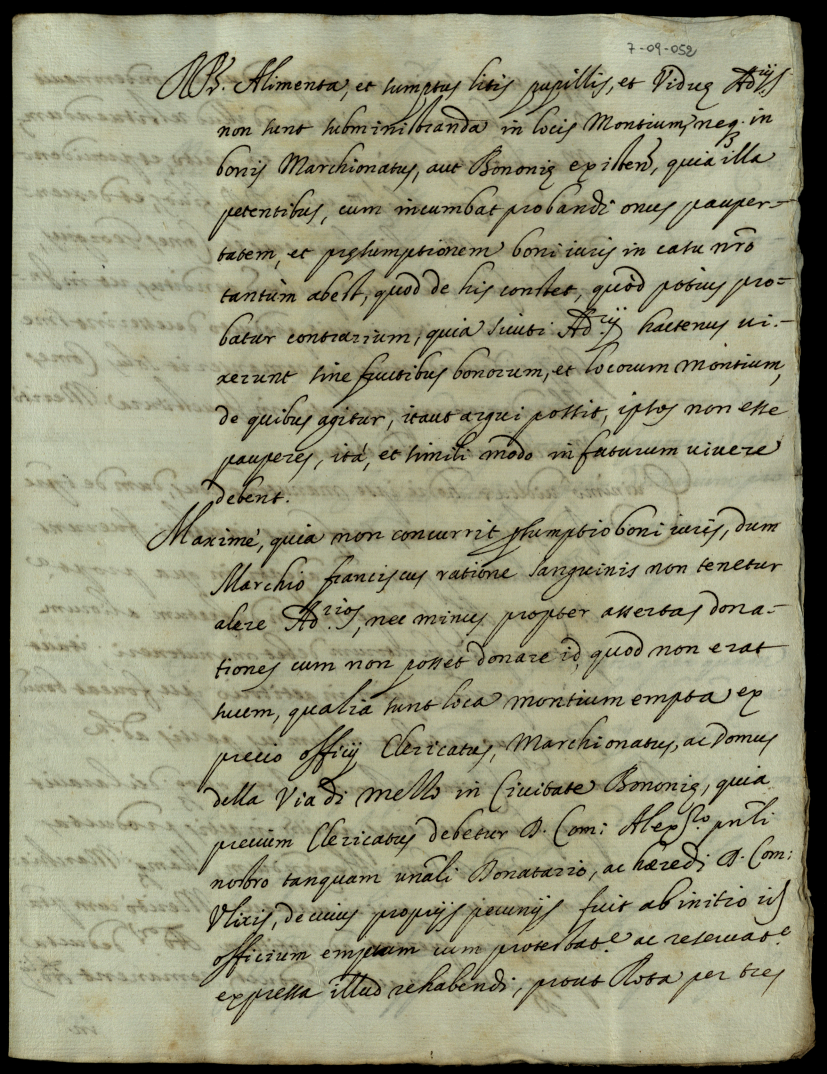 7-09-052
RR. Alimenta, et sumptus litis pupillis, et Viduę Ad.rijs
non sunt subministranda in locis Montium, neq. in
bonis Marchionatus, aut Bononię existen., quia illa
petentibus, cum incumbat probandi onus pauper-
tatem, et pręsumptionem boni iuris in casu nrõ
tantùm abest, quod de his constet, quòd potius pro-
batur contrarium, quia sicuti Ad.rij hactenus ui-
xerunt sine fructibus bonorum, et locorum montium,
de quibus agitur, itaut argui possit, ipsos non esse
pauperes, ità, et simili modo in futurum uiuere
debent.
Maximè, quia non concurrit psumptio boni iuris, dum
Marchio franciscus ratione sanguinis non tenetur
alere Ad.rios, nec minus propter assertas dona-
tiones cum non posset donare id, quod non erat
suum, qualia sunt loca montium empta ex
precio officij Clericatus, Marchionatus, ac Domus
della Via di mezzo in Ciuitate Bononię, quia
precium Clericatus debetur D. Com: Alex.ro pnli
nostro tanquam unãli Donatario, ac hæredi D. Com:
Vlixis, de cuius proprijs pecunijs fuit ab initio id
officium emptum cum protestat.e ac reseruat.e
expressa illud rehabendi, prout Rota per tres